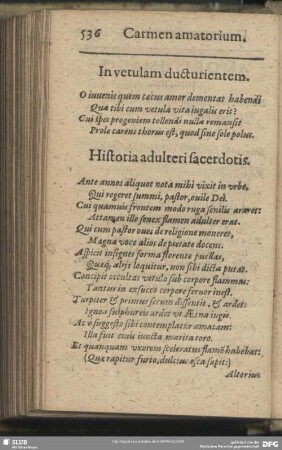 536 Carmen amatorium.
In vetulam ducturientem.
O iuvenis quem cæcus amor dementat habendi
Quæ tibi cum vetula vita iugalis erit?
Cui spes progeniem tollendi nulla remansit
Prole carens thorus est, quod sine sole polus.
Historia adulteri sacerdotis.
Ante annos aliquot nota mihi vixit in urbe,
Qui regeret summi, pastor, ovile Dei.
Cui quamuis frontem modo ruga senilis araret:
Attamen ille senex flamen adulter erat.
Qui cum pastor oues de religione moneret,
Magna voce alios de pietate docens.
Aspicit insignes forma florente puellas,
Quæq; alijs loquitur, non sibi dicta putat.
Concipit occultas vetulo sub corpore flammas:
Tantus in exsucco corpore fervor inest.
Turpiter & primus secum dissentit, & ardet:
Ignea sulphureis ardet vt Ætna iugis.
Ac è suggesto sibi contemplatur amatam:
Illa fuit ciui iuncta marita toro.
Et quanquam vxorem sceleratus flamẽ habebat:
(Quæ rapitur furto, dulcius esca sapit:)
Alterius
SLUB
Wir führen Wissen.
gefördert von der
Deutschen Forschungsgemeinschaft
DFG